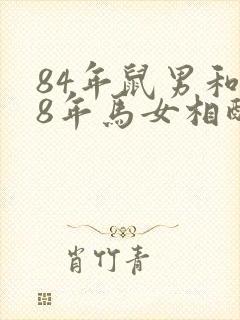 84年鼠男和
8年马女相配
肖竹青